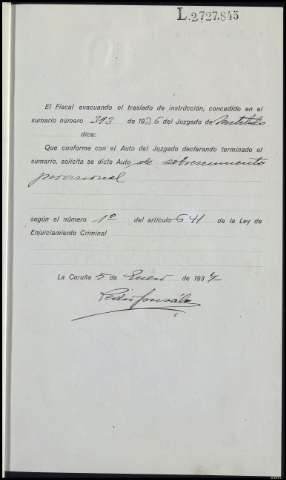 L.2727.845
El Fiscal evacuando el traslado de instrucción, concedido en el
sumario número 393 de 1936 del Juzgado de Instituto
dice:
Que conforme con el Auto del Juzgado declarando terminado el
sumario, solicita se dicte Auto de sobreseimiento
provisional
según el número 1º del artículo 641 de la Ley de
Enjuiciamiento Criminal
La Coruña 5 de Enero de 1937